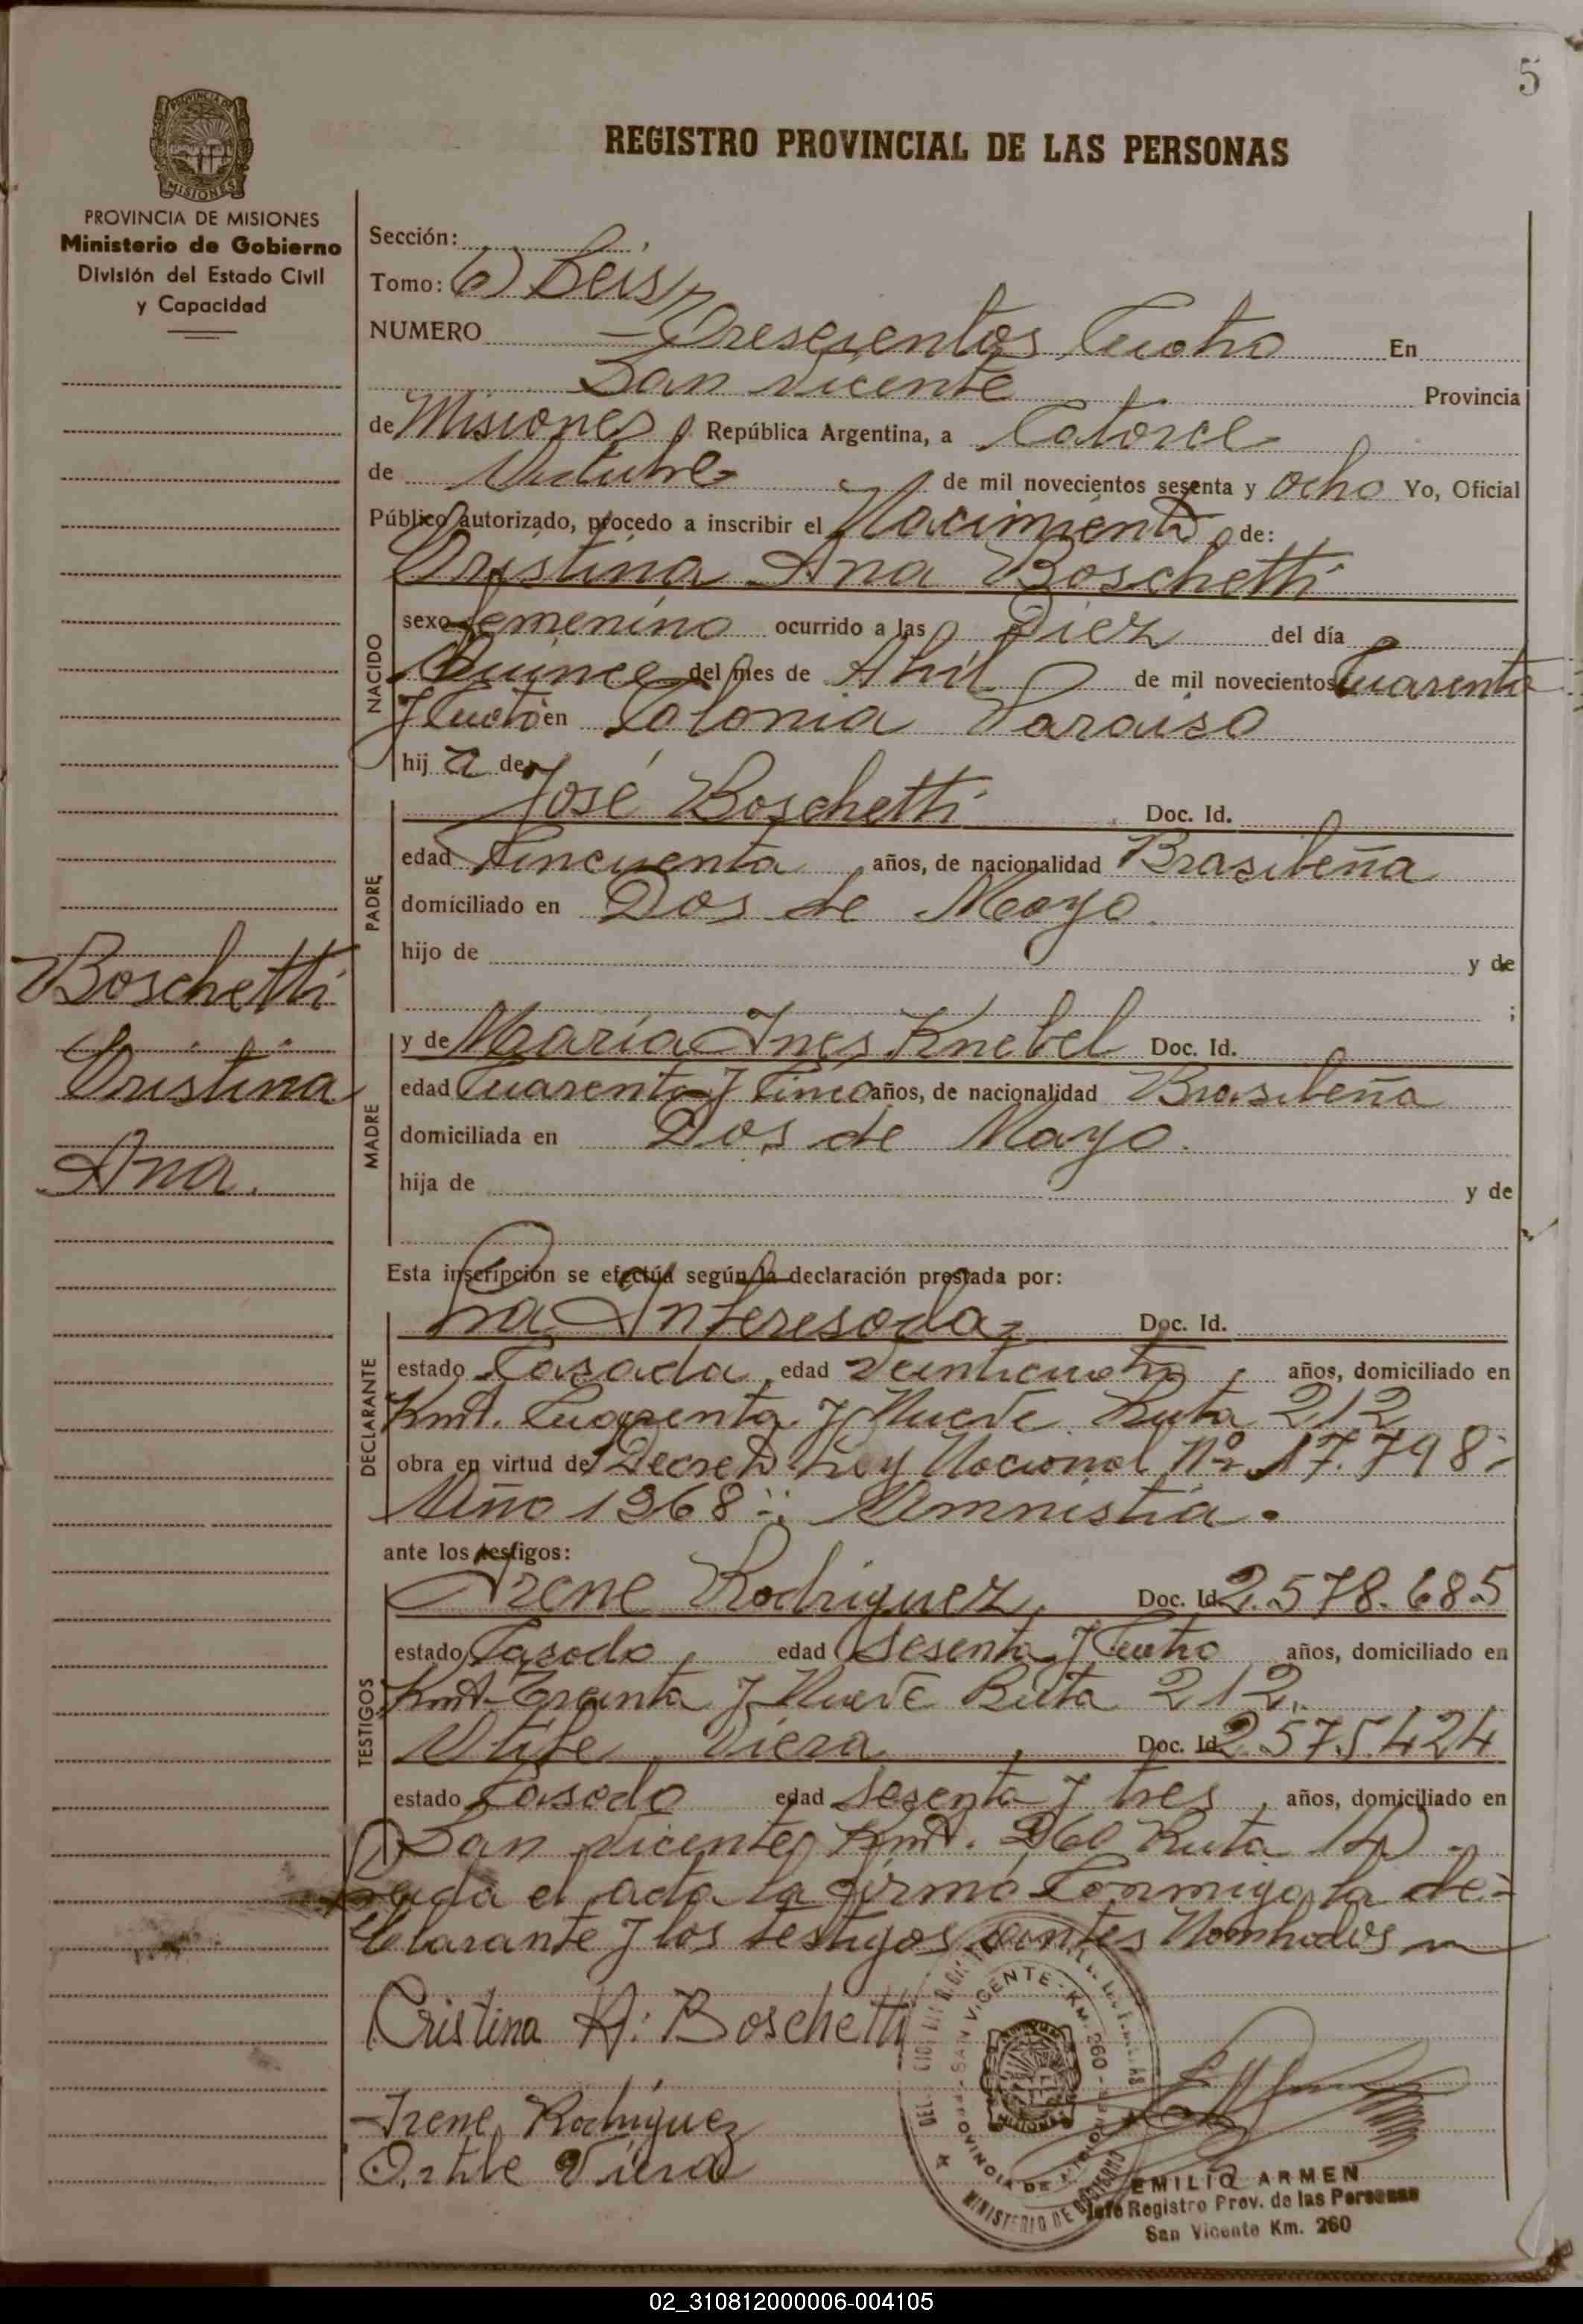 5
REGISTRO PROVINCIAL DE LAS PERSONAS
PROVINCIA DE MISIONES
PROVINCIA DE MISIONES
Ministerio de Gobierno
División del Estado Civil
y Capacidad
Sección:
Tomo: 6) Seis,
NUMERO Trescientos Cuatro En
San Vicente Provincia
de Misiones, República Argentina, a Catorce
de Octubre de mil novecientos sesenta y ocho Yo, Oficial
Público autorizado, procedo a inscribir el Nacimiento de:
Cristina Ana Boschetti
NACIDO
sexo femenino ocurrido a las Diez del día
Quince del mes de Abril de mil novecientos Cuarenta
y Cuatro en Colonia Paraiso
hij a de
PADRE
José Boschetti Doc. Id.
edad Cincuenta años, de nacionalidad Brasileña
domiciliado en Dos de Mayo
hijo de y de
;
MADRE
y de María Ines Knebel Doc. Id.
edad Cuarenta y Cinco años, de nacionalidad Brasileña
domiciliada en Dos de Mayo.
hija de y de
Boschetti
Cristina
Ana.
Esta inscripción se efectúa según la declaración prestada por:
DECLARANTE
La Interesada Doc. Id.
estado Casada, edad Veinticuatro, años, domiciliado en
Kmt. Cuarenta y Nueve Ruta 212
obra en virtud de Decreto Ley Nacional Nº 17.798
Año 1968 Amnistia.
ante los testigos:
TESTIGOS
Irene Rodriguez, Doc. Id. 2.578.685
estado Casado, edad Sesenta y Cuatro años, domiciliado en
Kmt. Treinta y Nueve Ruta 212.
Viera Doc. Id. 2.575.424
estado Casado edad Sesenta y tres, años, domiciliado en
San Vicente, Kmt. 260 Ruta 14
el acta la firmó Conmigo, la de-
clarante y los testigos antes Nombrados
Cristina A. Boschetti
Irene Rodriguez
Viera
SAN VICENTE - KM. 260
PROVINCIA DE MISIONES
MINISTERIO DE GOBIERNO
EMILIO ARMEN
Jefe Registro Prov. de las Personas
San Vicente Km. 260
02_310812000006-004105